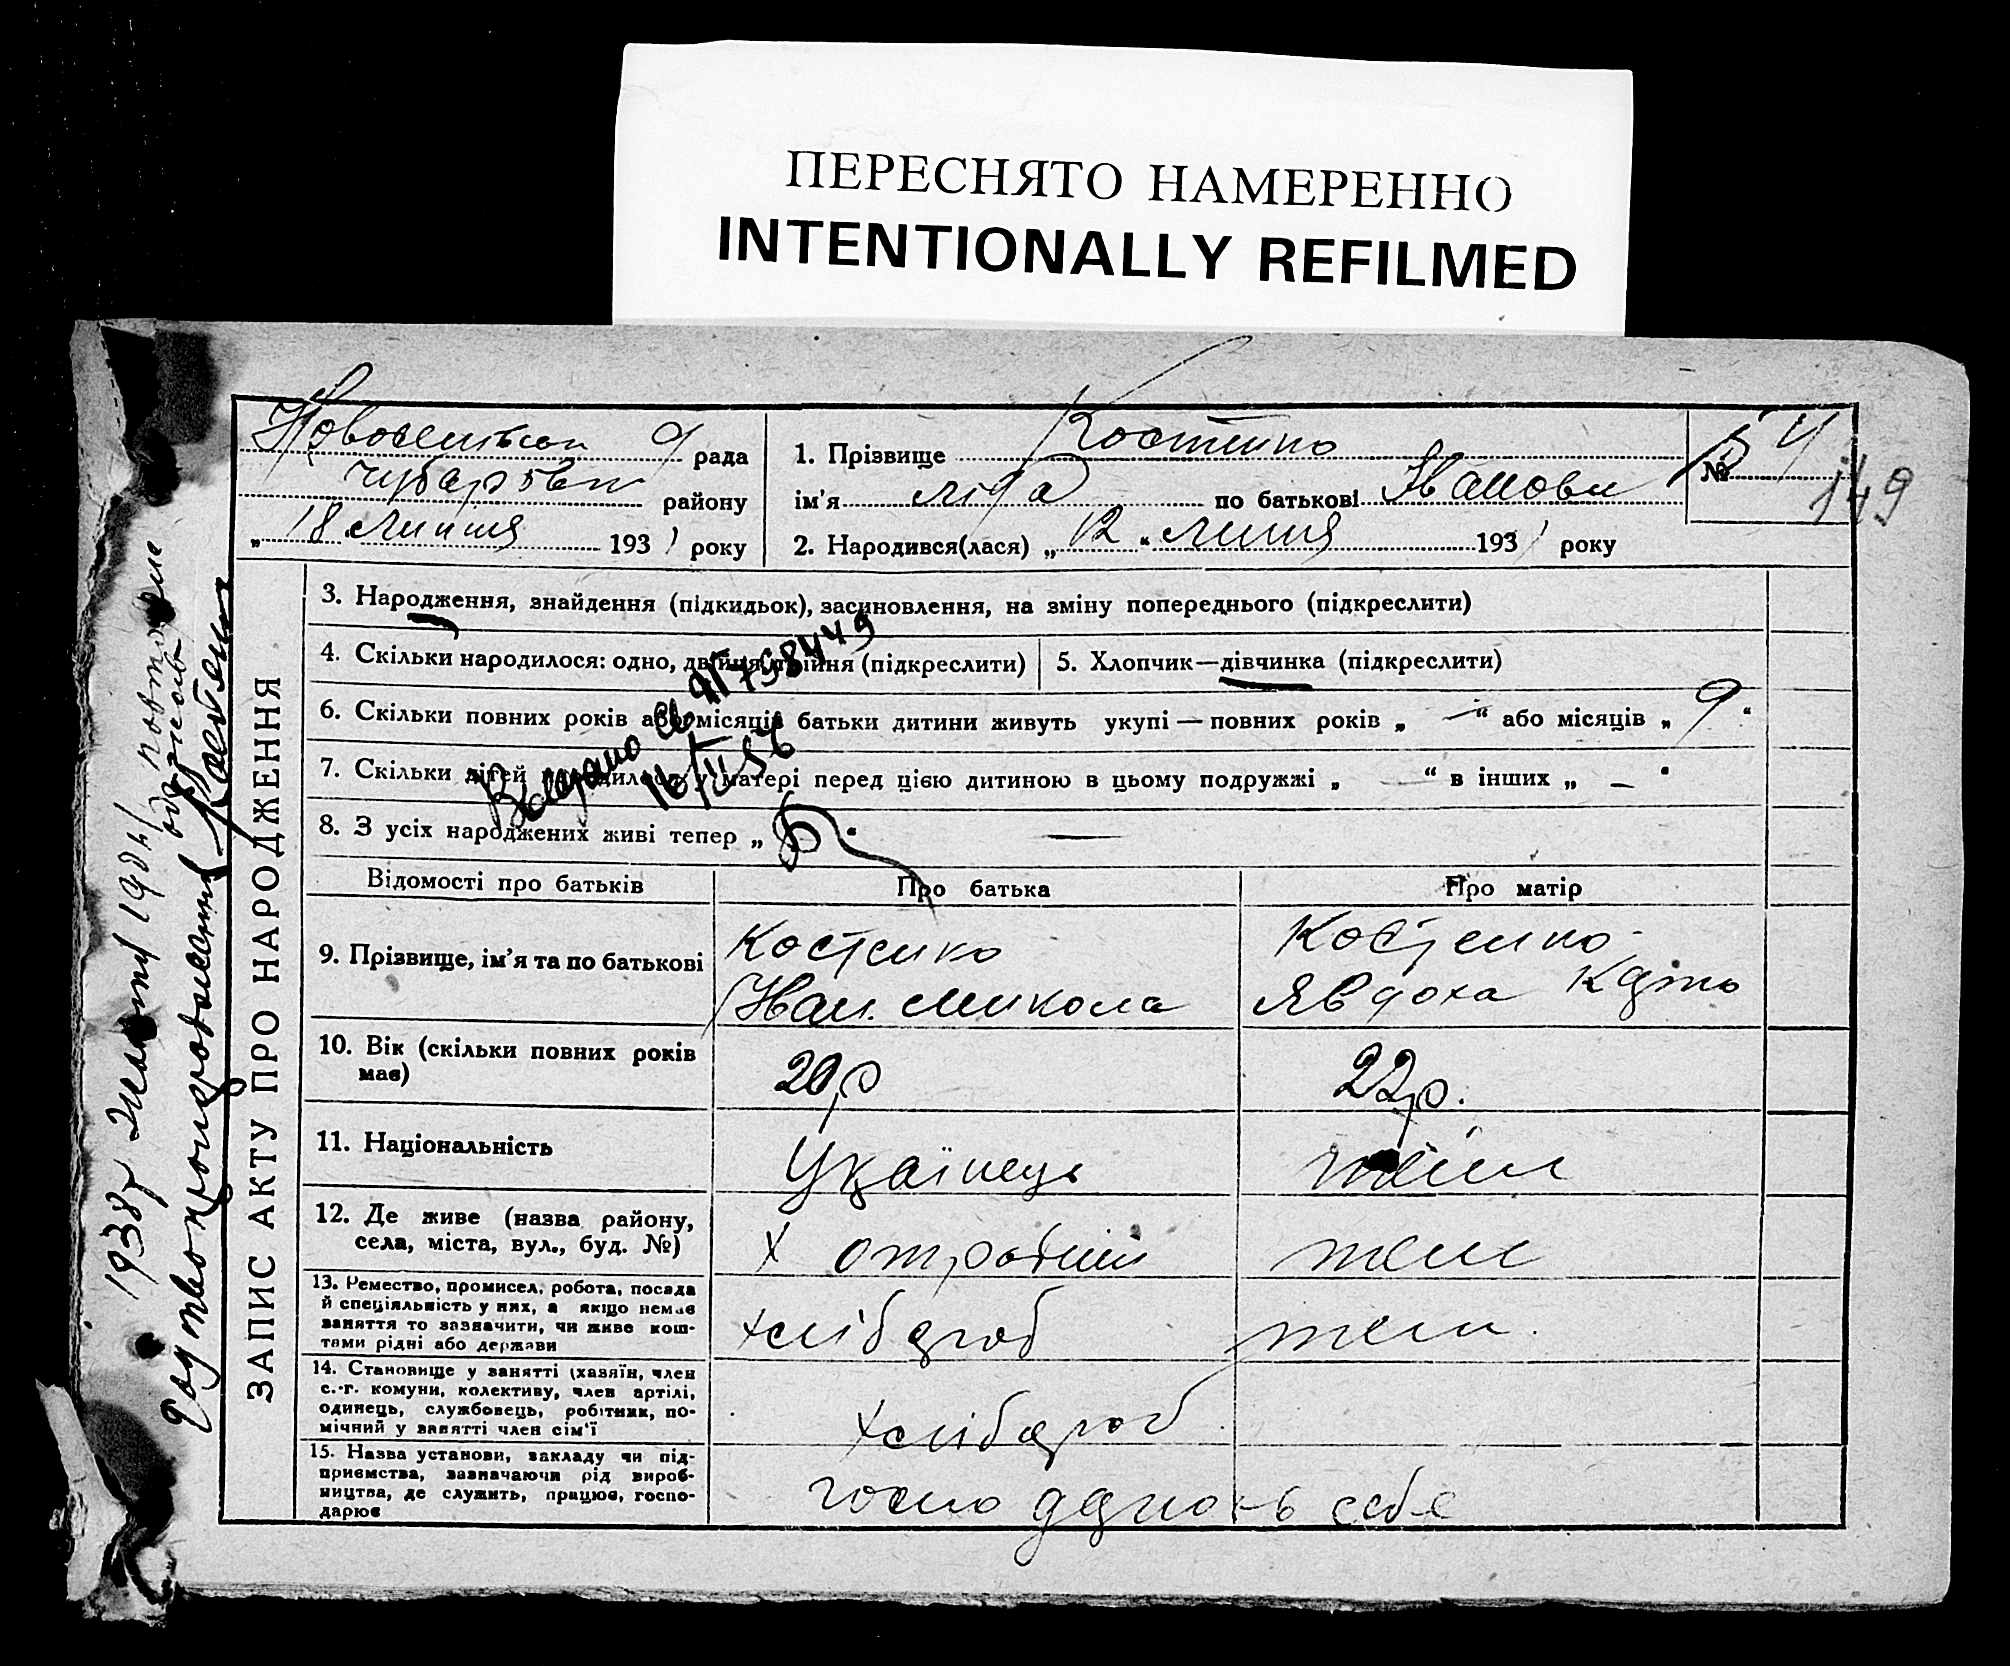 ПЕРЕСНЯТО НАМЕРЕННО
INTENTIONALLY REFILMED
рада
Чубарівськ району
„ 18 липня 1931 року
1. Прізвище Костенко
ім'я Ліда по батькові Іванови
2. Народився(лася) „ 12 “ липня 1931 року
№ 54
149
ЗАПИС АКТУ ПРО НАРОДЖЕННЯ
3. Народження, знайдення (підкидьок), засиновлення, на зміну попереднього (підкреслити)
4. Скільки народилося: одно, двійня, трійня (підкреслити)
5. Хлопчик—дівчинка (підкреслити)
6. Скільки повних років або місяців батьки дитини живуть укупі — повних років „ — “ або місяців „ 9 “
7. Скільки дітей народилось у матері перед цією дитиною в цьому подружжі „ “ в інших „ — “
8. З усіх народжених живі тепер „ —
758449
Відомості про батьків
Про батька
Про матір
9. Прізвище, ім'я та по батькові
Костенко
Іван Микола
Костенко
Явдоха
10. Вік (скільки повних років
має)
20р
22р.
11. Національність
Украінець
теж
12. Де живе (назва району,
села, міста, вул., буд. №)
х отрадний
теж
13. Ремество, промисел, робота, посада
й спеціяльність у них, а якщо немає
заняття то зазначити, чи живе кош-
тами рідні або держави
хлібороб
теж
14. Становище у занятті (хазяїн, член
с.-г. комуни, колективу, член артілі,
одинець, службовець, робітник, по-
мічний у занятті член сім'ї
хлібороб
15. Назва установи, закладу чи під-
приємства, зазначаючи рід вироб-
ництва, де служить, працює, госпо-
дарює
себе
1938р